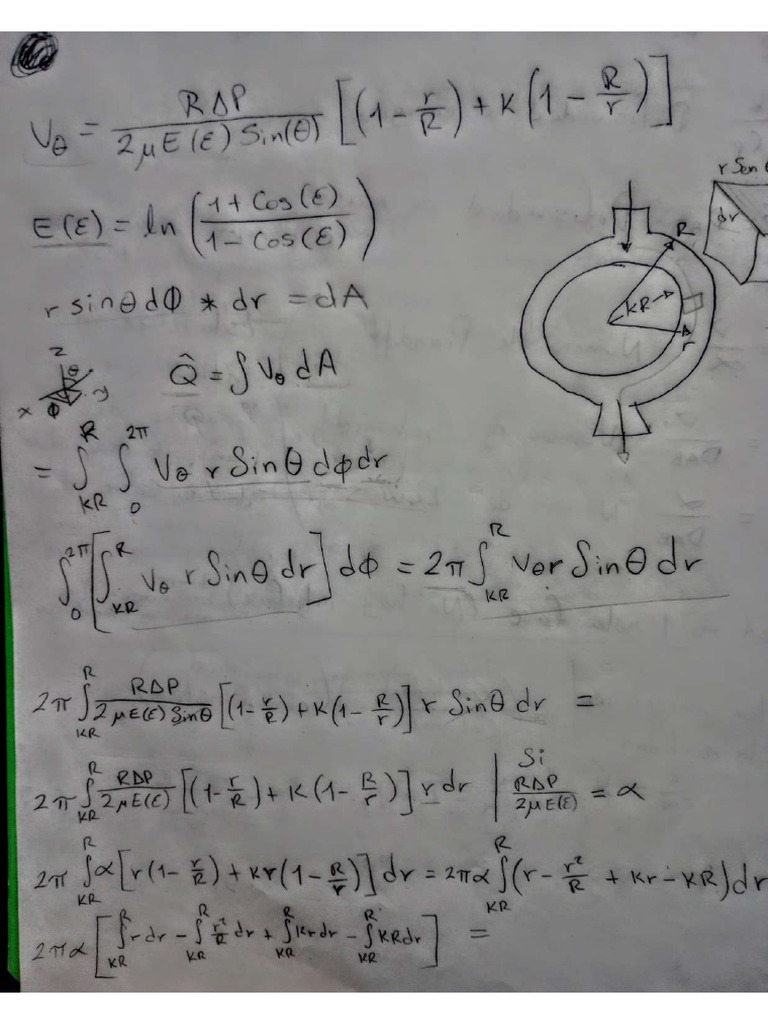 V_θ = RΔP / (2μE(ε) Sin(θ)) [(1 - r/R) + K(1 - R/r)]
E(ε) = ln((1 + Cos(ε)) / (1 - Cos(ε)))
r Sen
dr
R
KR
r
r sinθdΦ * dr = dA
z
θ
x Φ y
Q̂ = ∫ V_θ dA
= ∫_{KR}^{R} ∫_{0}^{2π} V_θ r Sinθ dφdr
∫_{0}^{2π} [∫_{KR}^{R} V_θ r Sinθ dr] dΦ = 2π ∫_{KR}^{R} V_θ r Sinθ dr
2π ∫_{KR}^{R} RΔP / (2μE(ε) Sinθ) [(1 - r/R) + K(1 - R/r)] r Sinθ dr =
2π ∫_{KR}^{R} RΔP / (2μE(ε)) [(1 - r/R) + K(1 - R/r)] r dr | Si RΔP / (2μE(ε)) = α
2π ∫_{KR}^{R} α[r(1 - r/R) + Kr(1 - R/r)] dr = 2πα ∫_{KR}^{R} (r - r²/R + Kr - KR)dr
2πα [∫_{KR}^{R} r dr - ∫_{KR}^{R} r²/R dr + ∫_{KR}^{R} Kr dr - ∫_{KR}^{R} KR dr] =